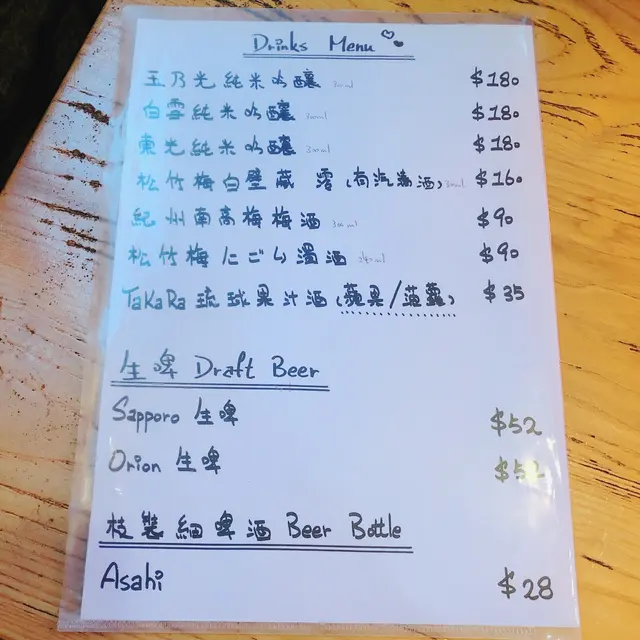 Drinks Menu
玉乃光純米吟釀 300ml $180
白雪純米吟釀 300ml $180
東光純米吟釀 300ml $180
松竹梅白壁蔵 澪 (有汽清酒) 300ml $160
紀州南高梅梅酒 300ml $90
松竹梅にごり濁酒 $90
TaKaRa 琉球果汁酒 (蘋果/菠蘿) $35
生啤 Draft Beer
Sapporo 生啤 $52
Orion 生啤 $52
枝裝細啤酒 Beer Bottle
Asahi $28